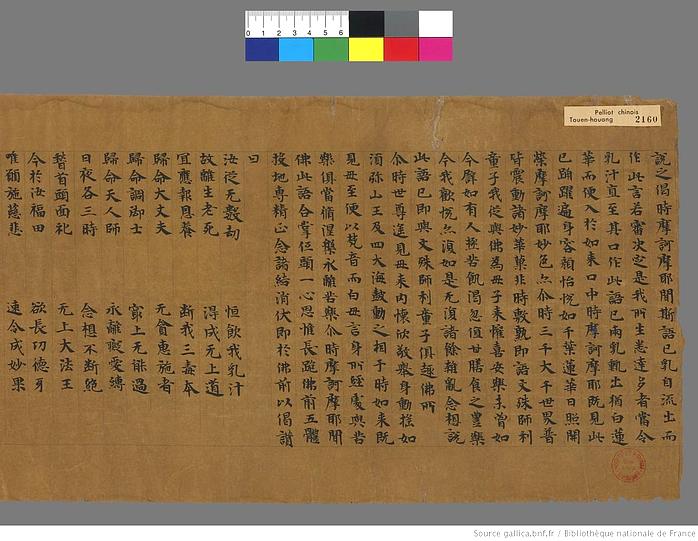 說之偈時摩訶摩耶聞斯語已乳自流出而
作此言若審決定是我所生悉達多者當令
乳汁直至其口作此語已兩乳 出猶白蓮
華而便入於如来口中時摩訶摩耶既見此
已踊躍遍身容顏怡悅如千葉蓮華日照開
榮摩訶摩耶妙色 尒時三千大千世界普
皆震動諸妙華菓非時敷熟即語文殊師利
童子我從與佛為母子来懽喜安樂未曾如
今譬如有人極苦飢渴忽值甘膳食之豐樂
今我歡悅亦復如是无復諸餘雜亂念想說
此語已即與文殊師利童子俱趣佛所
尒時世尊遥見母来內懷欣敬舉身動搖如
須弥山王及四大海皷動之相于時如来既
見母至便以梵音而白母言身所經處與苦
樂俱當脩涅槃永離苦樂尒時摩訶摩耶聞
佛此語合掌位頭一心思惟長跪佛前五體
投地專精正念諸結消伏即於佛前以偈讃
曰
汝從无數劫 恒飲我乳汁
故離生老死 得成无上道
宜應報恩養 斷我三毒本
歸命大丈夫 无貪惠施者
歸命調御士 最上无能過
歸命天人師 永離癡愛縛
日夜各三時 念想不斷絕
稽首頭面礼 无上大法王
今於汝福田 欲長功德牙
唯願施慈悲 速令成妙果
Pelliot chinois
Touen-houang 2160
0 1 2 3 4 5 6
Source gallica.bnf.fr / Bibliothèque nationale de France